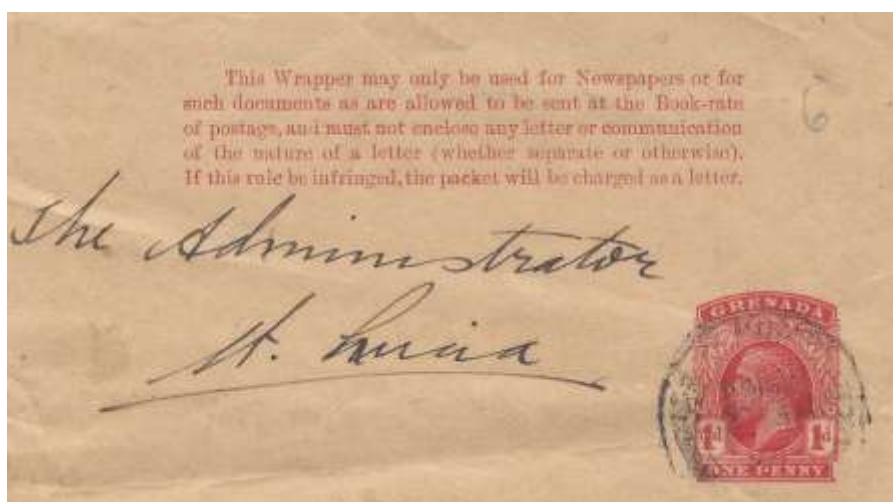 This Wrapper may only be used for Newspapers or for
such documents as are allowed to be sent at the Book-rate
of postage, and must not enclose any letter or communication
of the nature of a letter (whether separate or otherwise).
If this rule be infringed, the packet will be charged as a letter.
6
The Administrator
St. Lucia
GRENADA
1d 1d
ONE PENNY